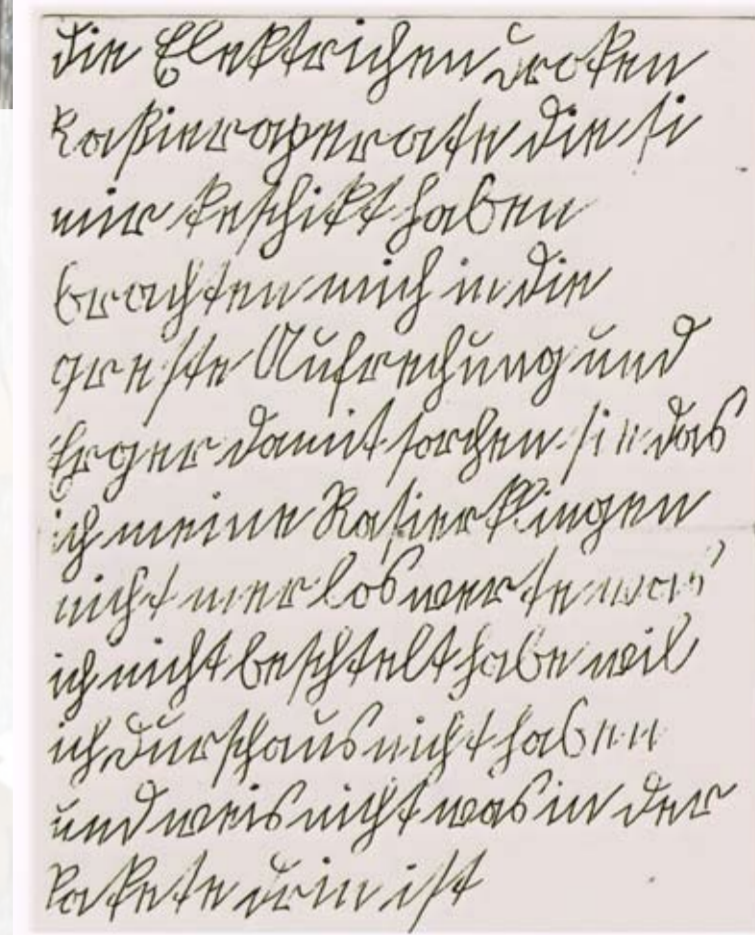 die Elektrichen droken
Raßieraperate die si
mir keschikt haben
brachten mich in die
greste Aufrechung und
Erger damit sorchen sie das
ich meine Rasierklingen
nicht mer los werte was
ich nicht beschtelt habe wil
ich durschaus nicht haben
und weis nicht was in der
Pakete drin ist